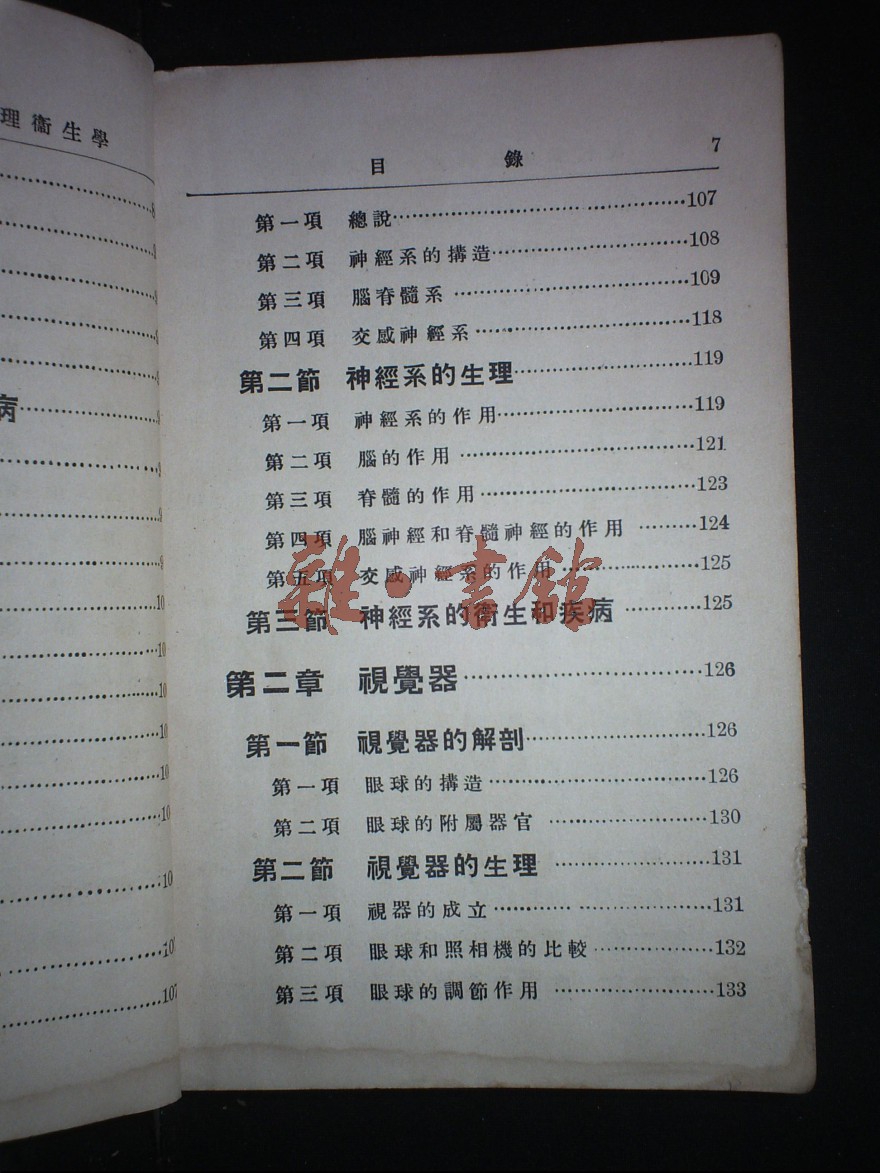 理衞生學
病
107
目錄 7
第一項 總說 107
第二項 神經系的搆造 108
第三項 腦脊髓系 109
第四項 交感神經系 118
第二節 神經系的生理 119
第一項 神經系的作用 119
第二項 腦的作用 121
第三項 脊髓的作用 123
第四項 腦神經和脊髓神經的作用 124
第五項 交感神經系的作用 125
第三節 神經系的衞生和疾病 125
第二章 視覺器 126
第一節 視覺器的解剖 126
第一項 眼球的搆造 126
第二項 眼球的附屬器官 130
第二節 視覺器的生理 131
第一項 視器的成立 131
第二項 眼球和照相機的比較 132
第三項 眼球的調節作用 133
雜·書館